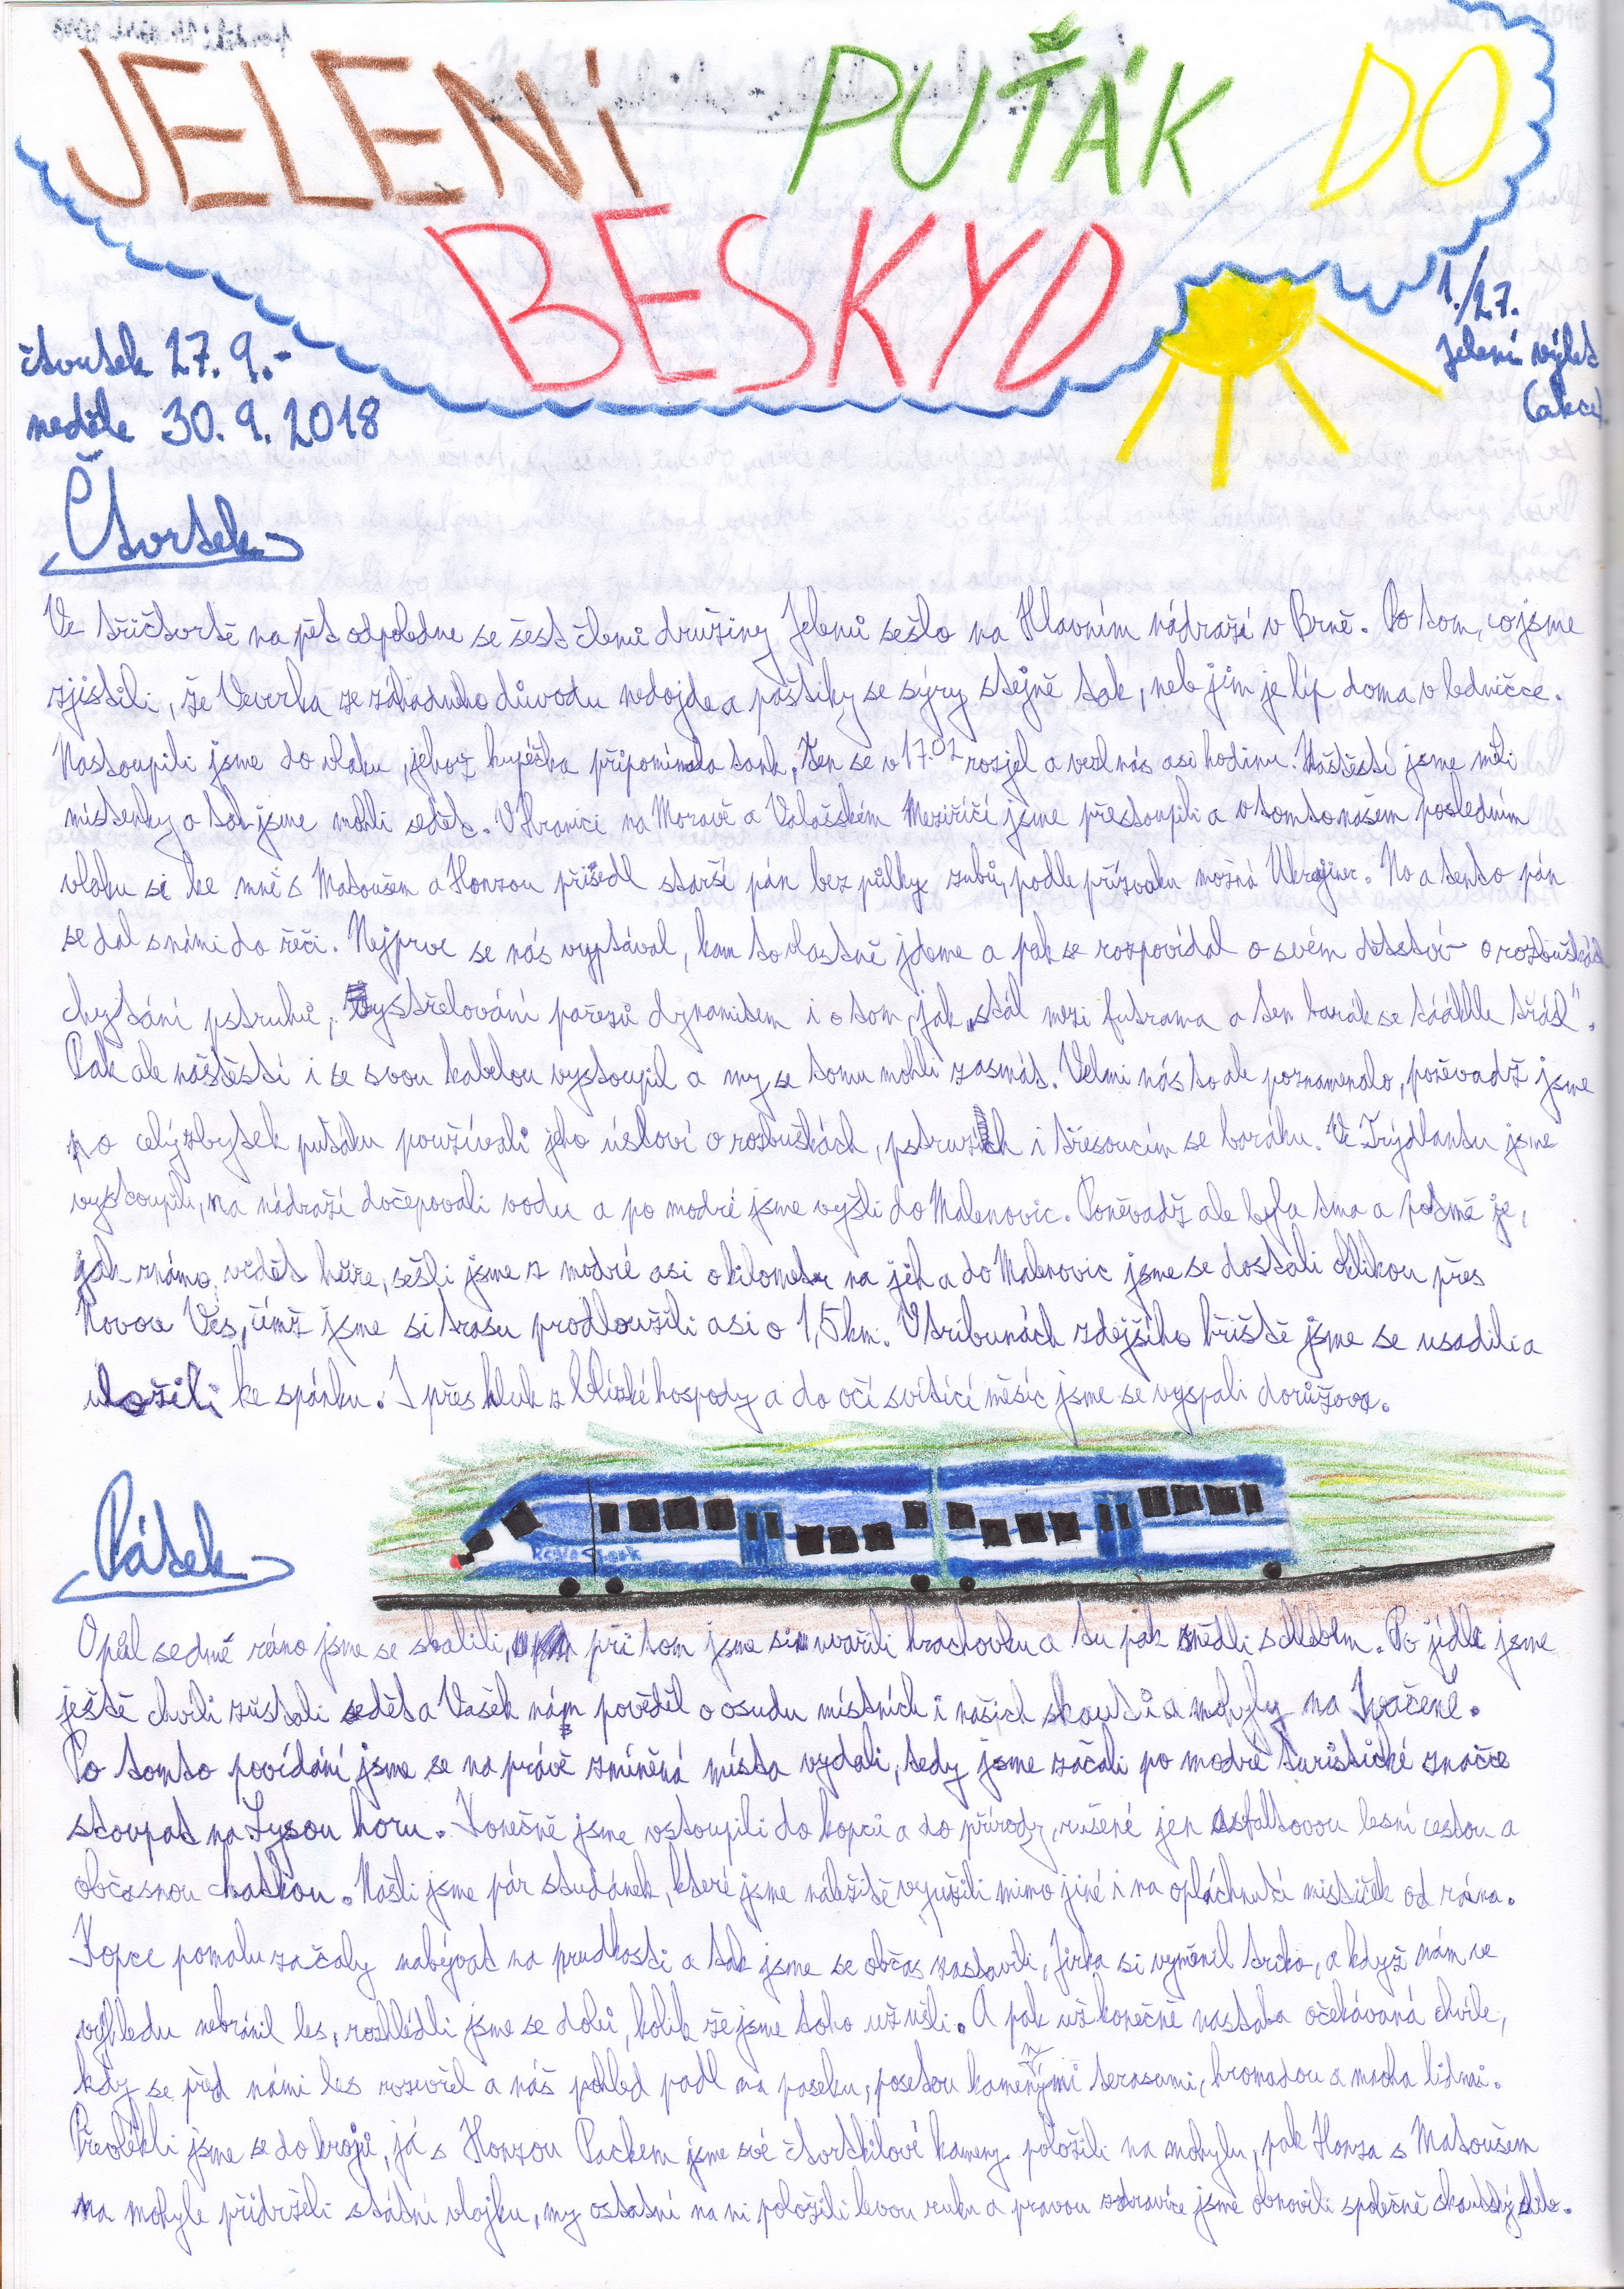 JELENÍ PUŤÁK DO
BESKYD
čtvrtek 27. 9. -
neděle 30. 9. 2018
1./27.
Jelení výlet
(akce)
Čtvrtek
Ve třičtvrtě na pět odpoledne se šest členů družiny Jelenů sešlo na Hlavním nádraží v Brně. Po tom, co jsme
zjistili, že Veverka ze záhadného důvodu nedojde a paštiky se sýry stejně tak, neb jim je líp doma v ledničce.
Nastoupili jsme do vlaku, jehož kupéčka připomínala tank. Ten se v 17:02 rozjel a vezl nás asi hodinu. Naštěstí jsme měli
místenky a tak jsme mohli sedět. V Hranicí na Moravě a Valašském Meziříčí jsme přestoupili a v tomto našem posledním
vlaku si ke mně s Matoušem a Honzou přisedl starší pán bez půlky zubů, podle přízvuku možná Ukrajinec. No a tento pán
se dal s námi do řeči. Nejprve se nás vyptával, kam to vlastně jdeme a pak se rozpovídal o svém dětství - o rozbuškách
chytání pstruhů, vystřelování pařezů dynamitem i o tom, jak „stál mezi futrama a ten barák se tááhlle třásl".
Pak ale naštěstí i se svou kabelou vystoupil a my se tomu mohli zasmát. Velmi nás to ale poznamenalo, poněvadž jsme
po celý zbytek puťáku používali jeho úsloví o rozbuškách, pstruzích i třesoucím se baráku. Ve Frýdlantu jsme
vystoupili, na nádraží dočepovali vodu a po modré jsme vyšli do Malenovic. Poněvadž ale byla tma a potmě je,
jak známo, vidět hůře, sešli jsme z modré asi o kilometr na jih a do Malenovic jsme se dostali oklikou přes
Novou Ves, čímž jsme si trasu prodloužili asi o 1,5 km. V tribunách zdejšího hřiště jsme se usadili a
uložili ke spánku. I přes hluk z blízké hospody a do očí svítící měsíc jsme se vyspali dorůžova.
Pátek
O půl sedmé ráno jsme se sbalili, při tom jsme si uvařili hrachovku a tu pak snědli s chlebem. Po jídle jsme
ještě chvíli zůstali sedět a Vašek nám pověděl o osudu místních i našich skautů a mohyly na Ivančeně.
Po tomto povídání jsme se na právě zmíněná místa vydali, tedy jsme začali po modré turistické značce
stoupat na Lysou horu. Konečně jsme vstoupili do kopců a do přírody, rušené jen asfaltovou lesní cestou a
občasnou chatkou. Našli jsme pár studánek, které jsme náležitě využili mimo jiné i na opláchnutí mističek od rána.
Kopce pomalu začaly nabývat na prudkosti a tak jsme se občas zastavili, Jirka si vyměnil triko, a když nám ve
výhledu nebránil les, rozhlédli jsme se dolů, kolik že jsme toho už ušli. A pak už konečně nastala očekávaná chvíle,
kdy se před námi les rozevřel a náš pohled padl na paseku, posetou kamennými terasami, hromadou a mnoha lidmi.
Převlékli jsme se do krojů, já s Honzou Packem jsme své čtvrtkilové kameny položili na mohylu, pak Honza s Matoušem
na mohyle přidrželi státní vlajku, my ostatní na ni položili levou ruku a pravou zdravíce jsme obnovili společně skautský slib.